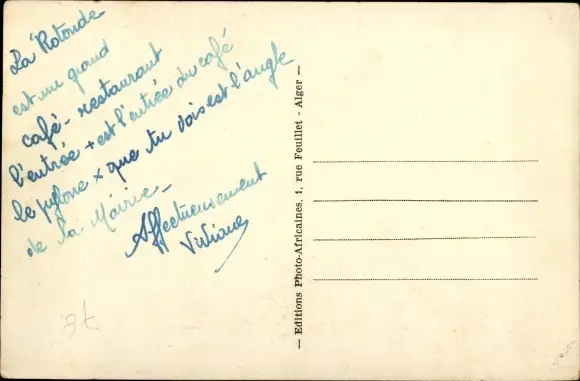 La Rotonde
est un grand
café-restaurant
l'entrée + est l'entrée du café
le pylone x que tu vois est l'angle
de la Mairie -
Affectueusement
Viviane
— Editions Photo-Africaines, 1, rue Feuillet - Alger —